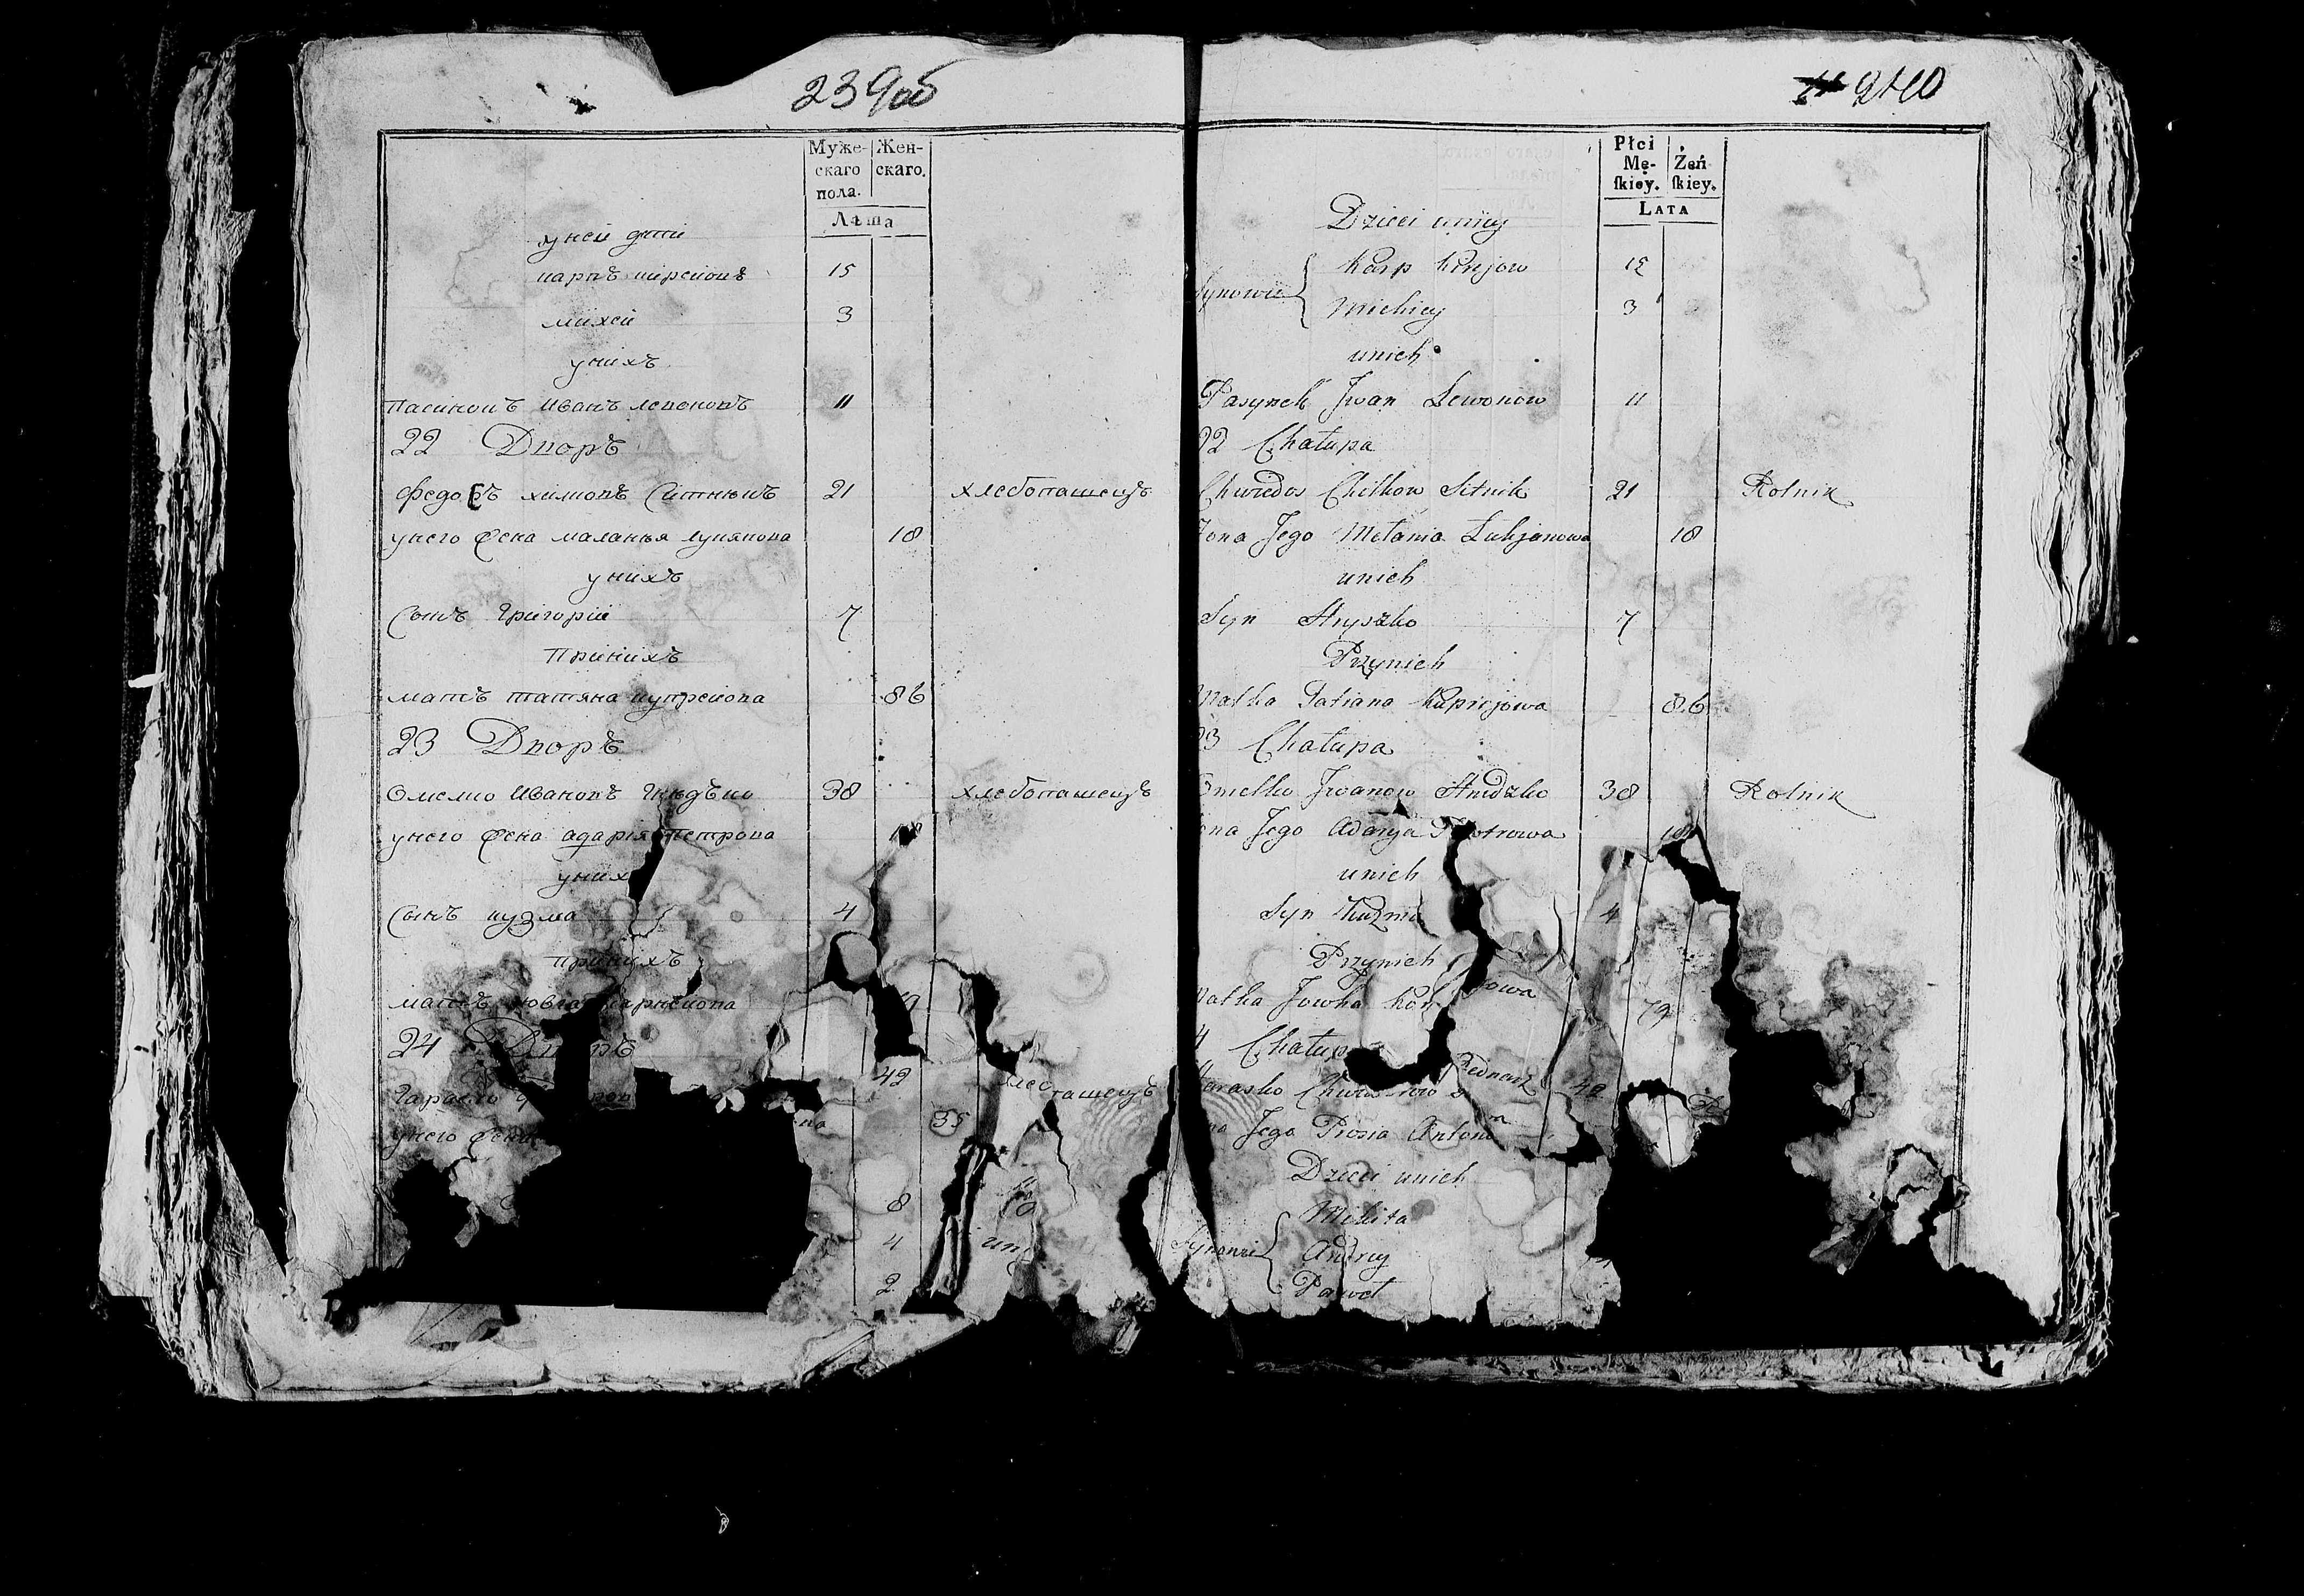 239об
Муже-
скаго
пола.
Жен-
скаго.
Лѣта
уней дети
карпъ кирѣіовъ 15
михей 3
унихъ
пасинокъ иванъ левоновъ 11
22 Дворъ
федоръ хилковъ Ситникъ 21 хлебопашецъ
унего жена маланья лукянова 18
унихъ
Сынъ григорій 7
принихъ
мать татяна купреіова 86
23 Дворъ
Омелко ивановъ 38 хлебопашецъ
унего жена адарія петрова
уних
Сынъ кузма 4
принихъ
мать
24 Дворъ
42
унего жена 35
8
4
2
240
Płci
Mę-
skiey.
Żeń
skiey.
LATA
Dzieci uniey
Synowie Karp Kirejow 15
Michiey 3
unich
Pasynek Jwan Lewonow 11
22 Chałupa
Chwiedor Chilkow Sitnik 21 Rolnik
Żona Jego Mełania Łukjanowa 18
unich
Syn Hryszko 7
Przynich
Matka Tatiana Kuprijowa 86
23 Chałupa
Omelko Jwanow 38 Rolnik
Żona Jego Adarya Piotrowa
unich
Syn Kuzma 4
Przynich
Matka Jowha 79
Chałupa
Harasko Bednarz 42
Jego Prosia Antonowa
Dzieci unich
Synowie Mikita
Andrey
Paweł